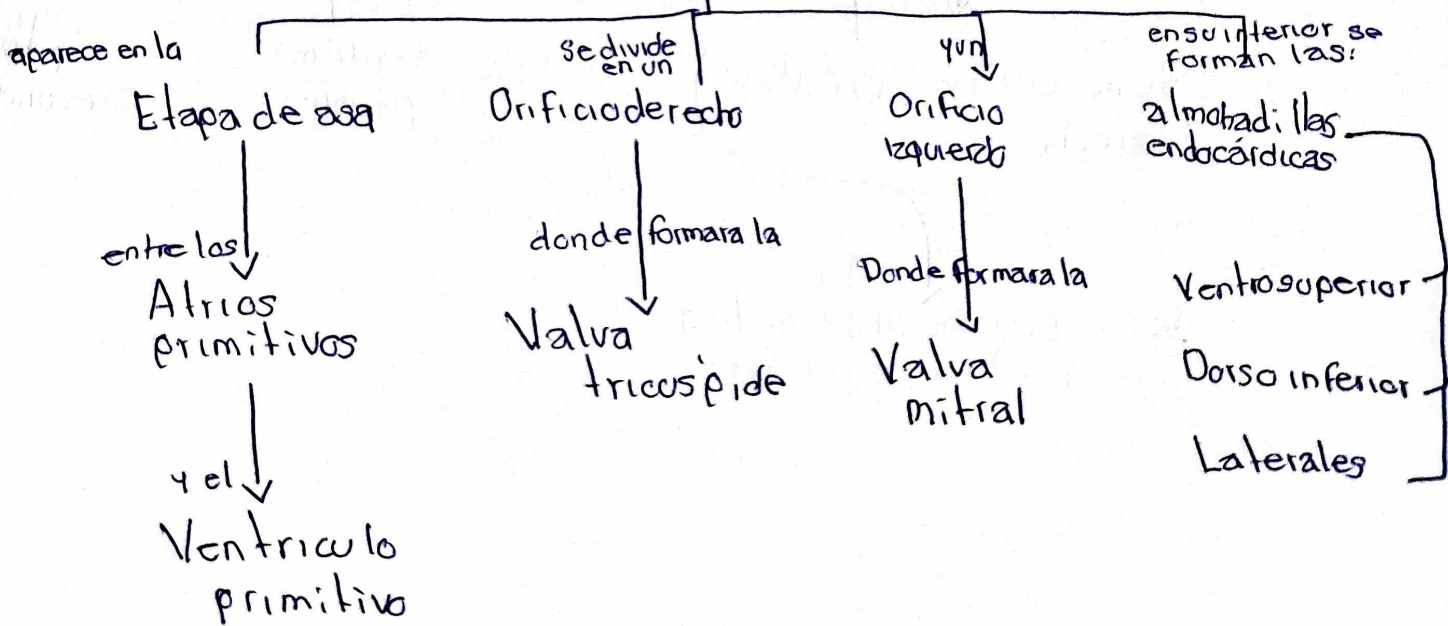 aparece en la
Etapa de asa
entre los
Atrios
primitivos
y el
Ventriculo
primitivo
se divide
en un
Orificio derecho
donde formara la
Valva
tricúspide
y un
Orificio
izquierdo
Donde formara la
Valva
mitral
en su interior se
forman las:
almohadillas
endocárdicas
Ventrosuperior
Dorso inferior
Laterales